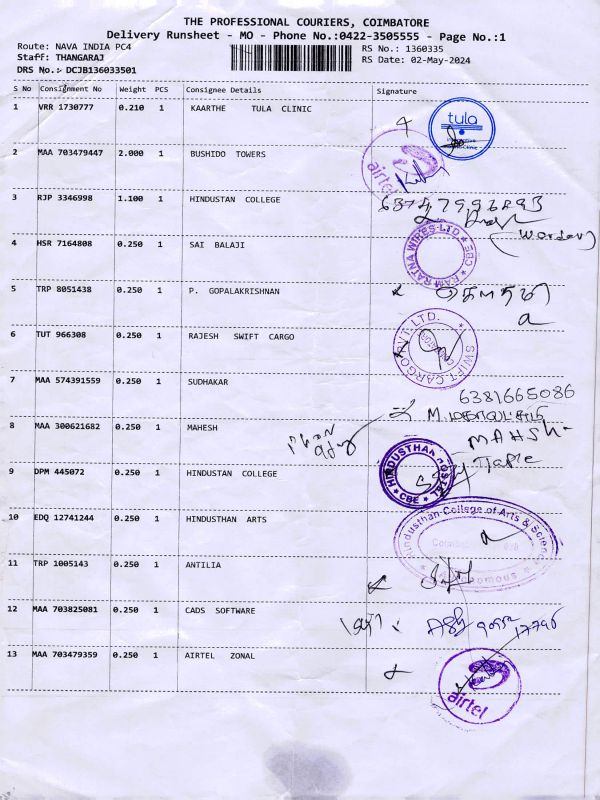 THE PROFESSIONAL COURIERS, COIMBATORE
Delivery Runsheet - MO - Phone No.:0422-3505555 - Page No.:1
Route: NAVA INDIA PC4
RS No.: 1360335
Staff: THANGARAJ
RS Date: 02-May-2024
DRS No.: DCJB136033501
S No Consignment No Weight PCS Consignee Details Signature
1 VRR 1730777 0.210 1 KAARTHE TULA CLINIC
tula
2 MAA 703479447 2.000 1 BUSHIDO TOWERS
airtel
3 RJP 3346998 1.100 1 HINDUSTAN COLLEGE
(Warden)
4 HSR 7164808 0.250 1 SAI BALAJI
RAM RATNA WIRES LTD ★ CBE ★
5 TRP 8051438 0.250 1 P. GOPALAKRISHNAN
6 TUT 966308 0.250 1 RAJESH SWIFT CARGO
SWIFT CARGO PVT. LTD.
7 MAA 574391559 0.250 1 SUDHAKAR
6381665086
8 MAA 300621682 0.250 1 MAHESH
9 DPM 445072 0.250 1 HINDUSTAN COLLEGE
HINDUSTHAN HOSTEL ★ CBE ★
10 EDQ 12741244 0.250 1 HINDUSTHAN ARTS
Hindusthan College of Arts & Science
11 TRP 1005143 0.250 1 ANTILIA
12 MAA 703825081 0.250 1 CADS SOFTWARE
13 MAA 703479359 0.250 1 AIRTEL ZONAL
airtel